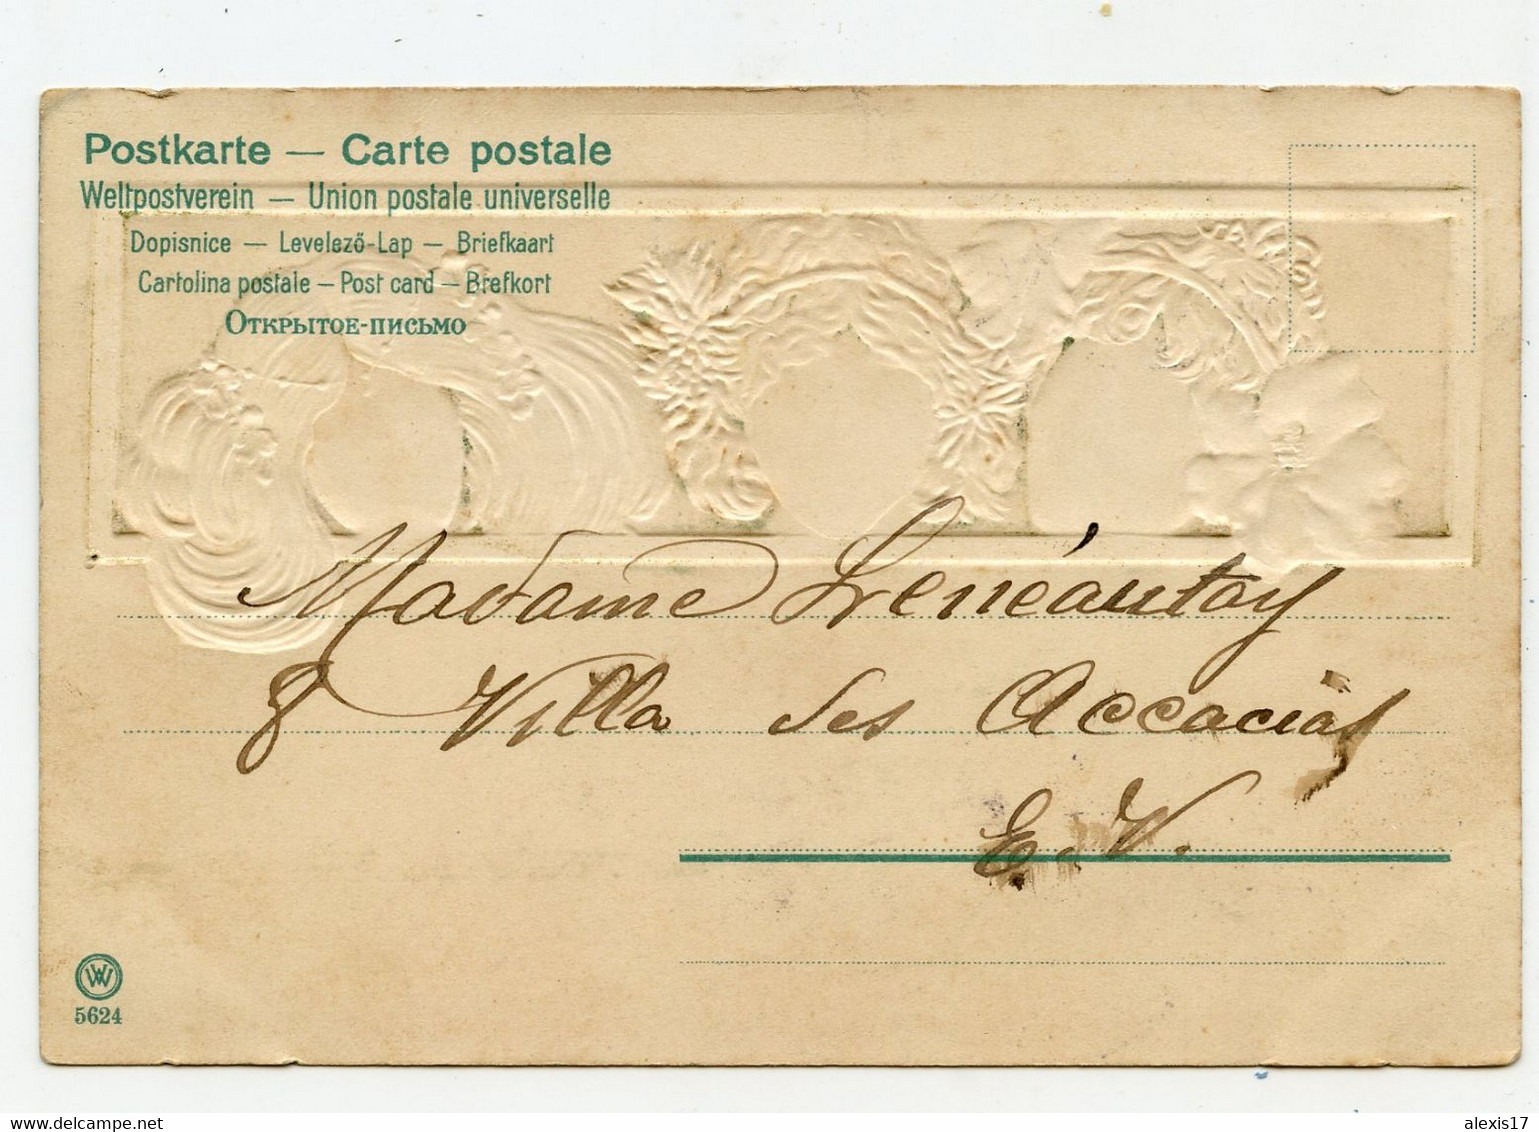 Postkarte — Carte postale
Weltpostverein — Union postale universelle
Dopisnice — Levelező-Lap — Briefkaart
Cartolina postale — Post card — Brefkort
Открытое-письмо
Madame
8 Villa des Accacias
E. V.
W
5624
www.delcampe.net
alexis17